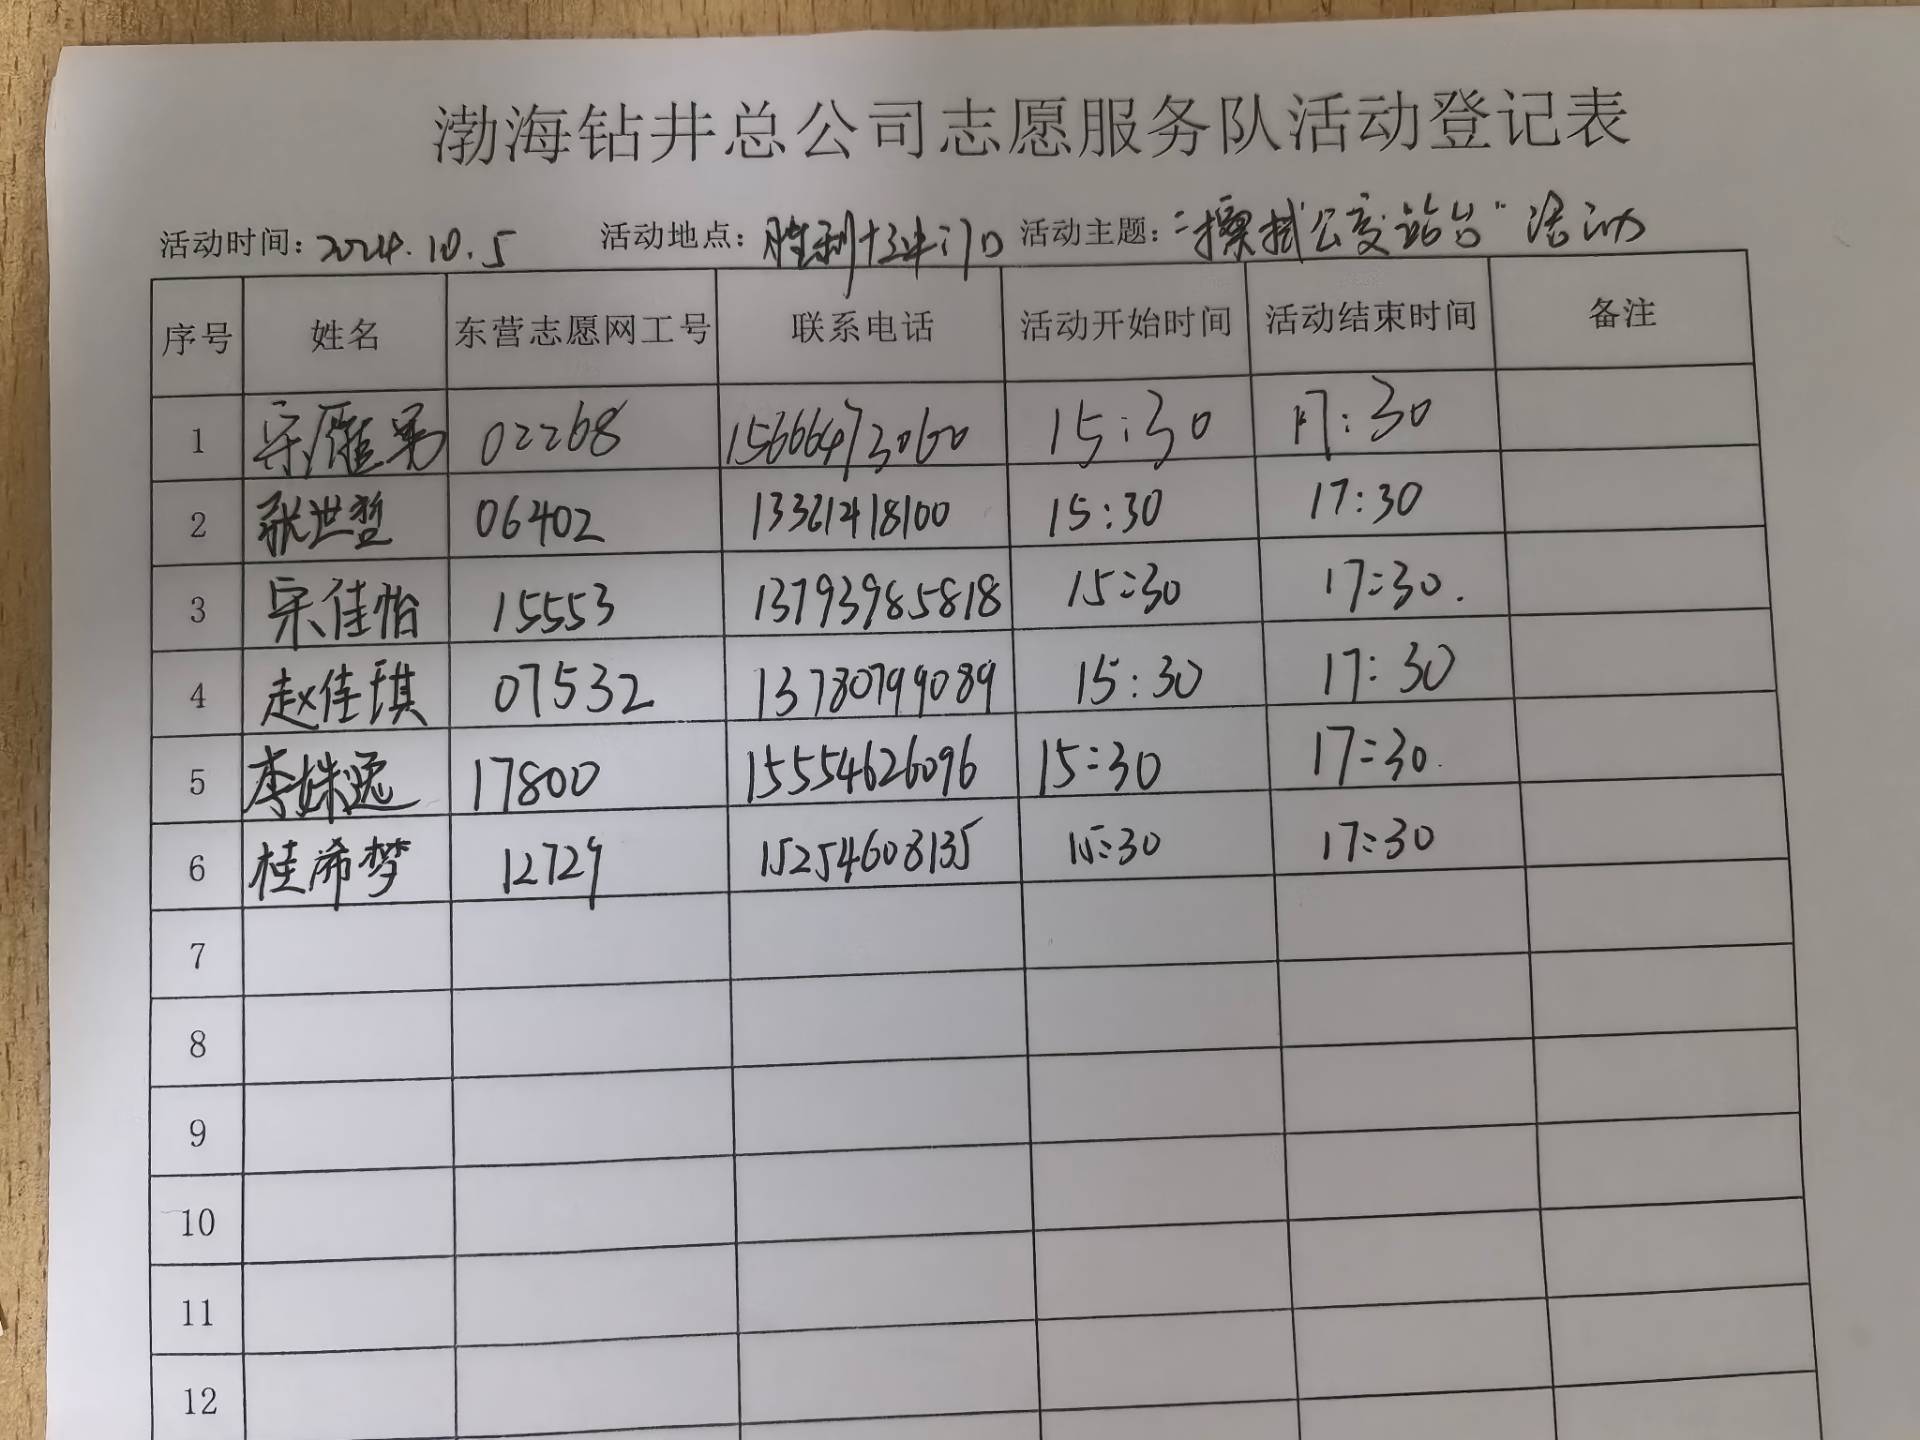 渤海钻井总公司志愿服务队活动登记表
活动时间：2024.10.5 活动地点：胜利十五中门口 活动主题："擦拭公交站台"活动
序号 姓名 东营志愿网工号 联系电话 活动开始时间 活动结束时间 备注
1 宋雁男 02268 15666473060 15:30 17:30
2 张世哲 06402 13361418100 15:30 17:30
3 宋佳怡 15553 13793985818 15:30 17:30.
4 赵佳琪 07532 13780799089 15:30 17:30
5 李姝逸 17800 15554626096 15:30 17:30.
6 桂希梦 12729 15254608135 15:30 17:30
7
8
9
10
11
12